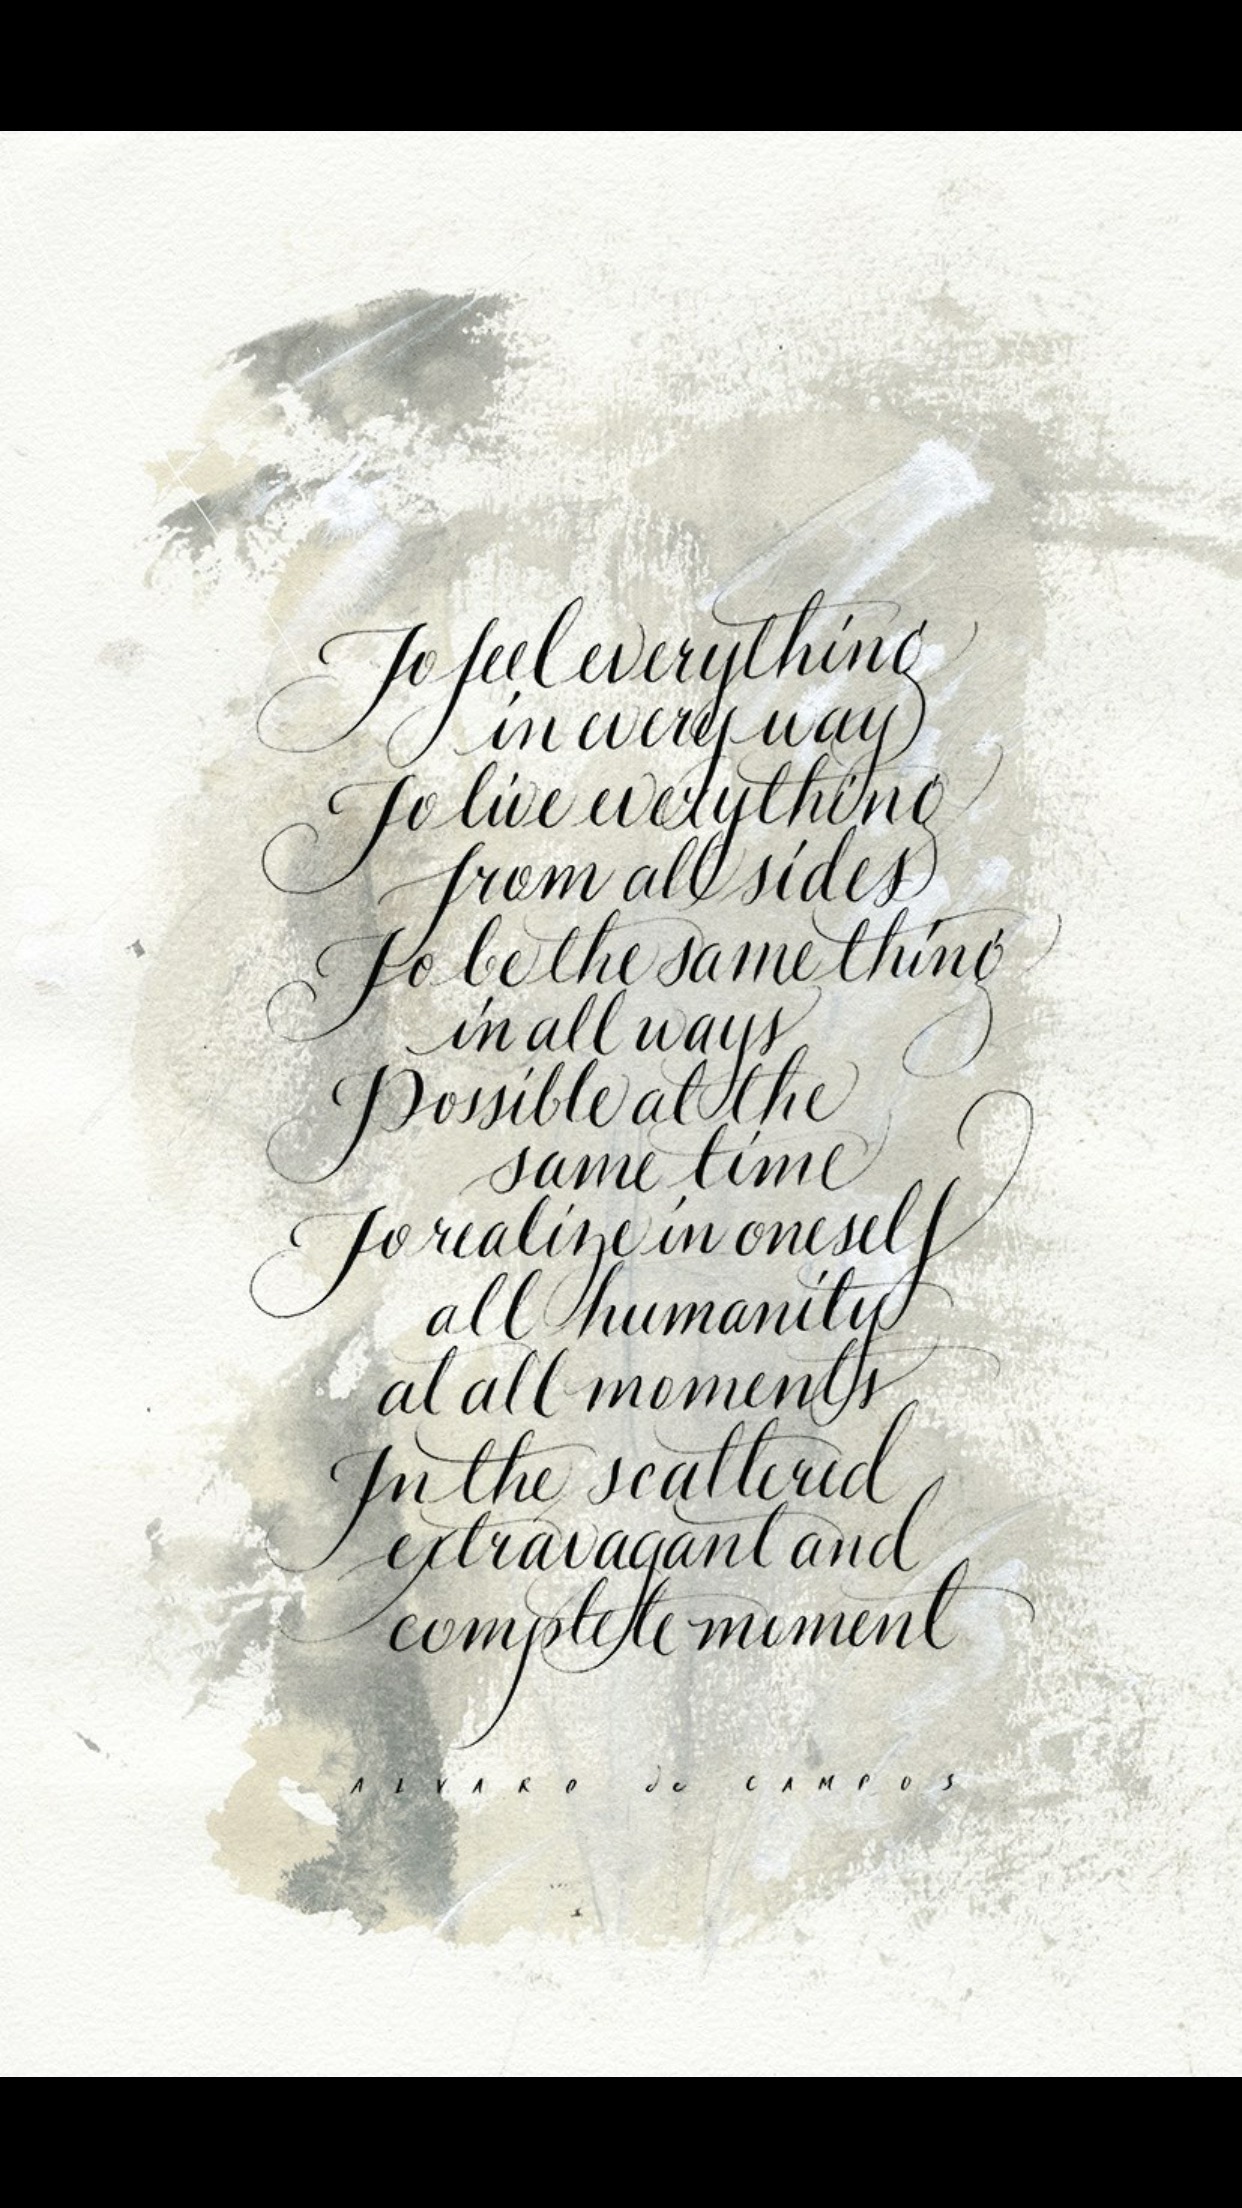 To feel everything
in every way
To live everything
from all sides
To be the same thing
in all ways
Possible at the
same time
To realize in oneself
all humanity
at all moments
In the scattered
extravagant and
complete moment
ALVARO de CAMPOS